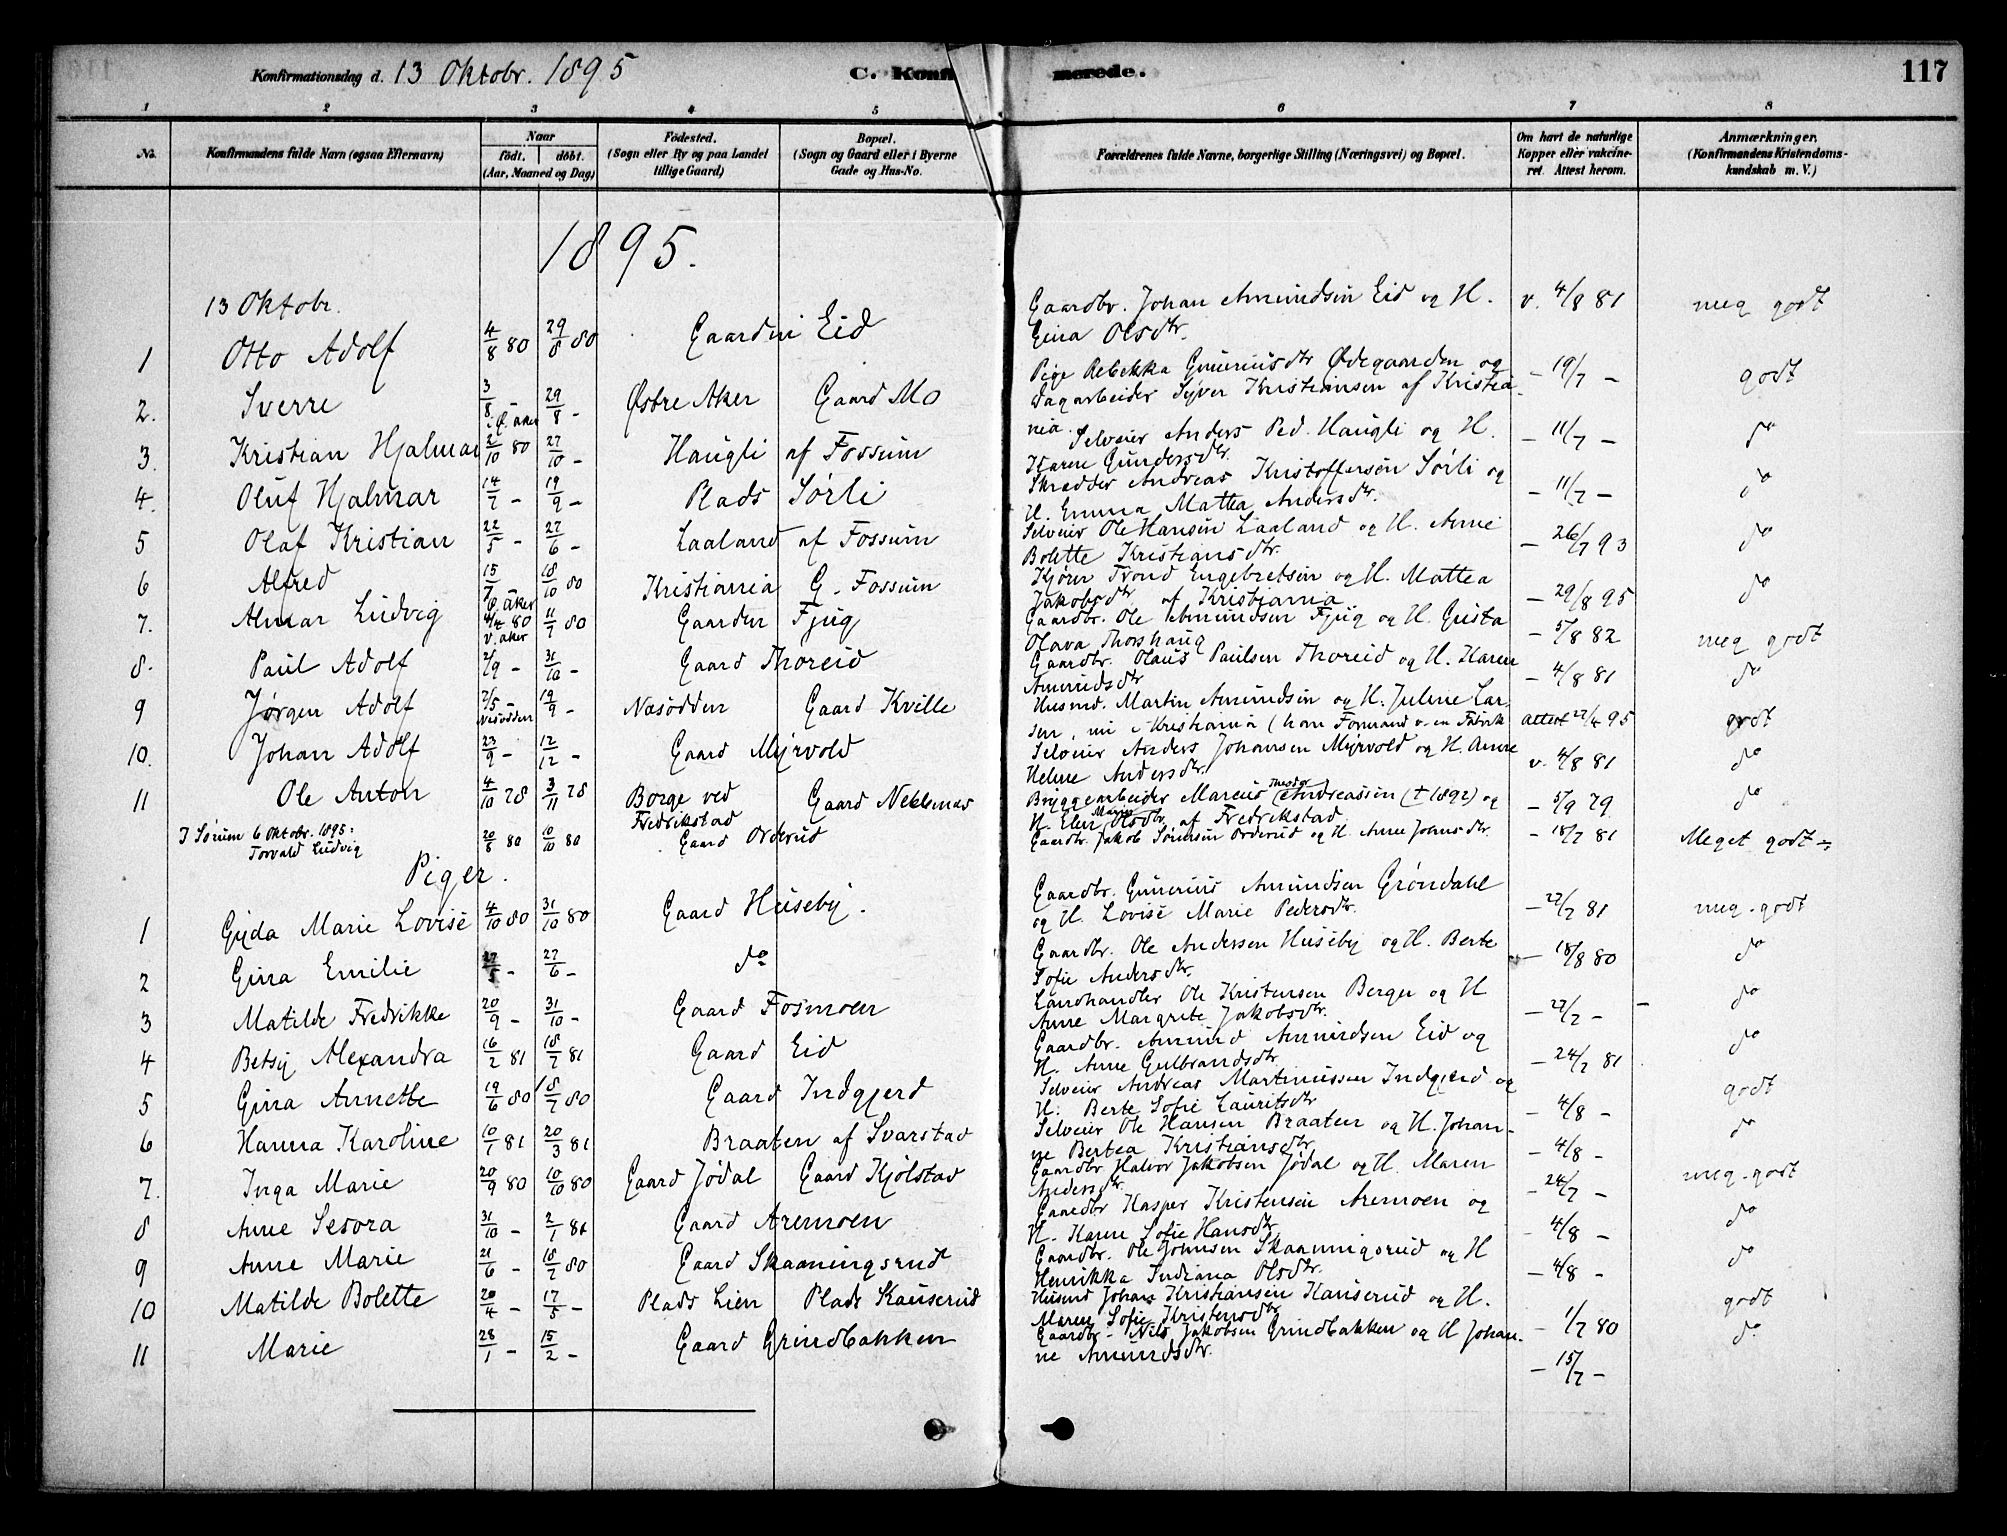 Konfirmationsdag d. 13 Oktobr. 1895 C. Konfirmerede. 117
1 2 3 4 5 6 7 8
No. Konfirmandens fulde Navn (ogsaa Efternavn) Naar födt. döbt. (Aar, Maaned og Dag) Födested. (Sogn eller By og paa Landet tillige Gaard) Bopæl. (Sogn og Gaard eller i Byerne Gade og Hus-No. Forældrenes fulde Navne, borgerlige Stilling (Næringsvei) og Bopæl. Om havt de naturlige Kopper eller vakcineret. Attest herom. Anmærkninger. (Konfirmandens Kristendomskundskab m. V.)
1895.
13 Oktobr.
1 Otto Adolf 4/8 80 29/8 80 Gaarden Eid Gaardbr. Johan Amundsen Eid og H. Gina Olsdtr. v. 4/8 81 meg godt
2. Sverre 3/8 - i Ø. Aker 29/8 - Østre Aker Gaard Mo Pige Rebekka Guneriusdtr Ødegaarden og Dagarbeider Syver Kristiansen af Kristiania. - 19/7 - godt
3. Kristian Hjalmar 2/10 80 27/10 - Haugli af Fossum Selveier Anders Ped. Haugli og H. Karen Gundersdtr. - 11/7 - do
4. Oluf Hjalmar 14/7 - 19/9 - Plads Sørli Skrædder Andreas Kristoffersen Sørli og H. Emma Mattea Andersdtr. - 11/7 - do
5 Olaf Kristian 22/5 - 27/6 - Laaland af Fossum Selveier Ole Hansen Laaland og H. Anne Bolette Kristiansdtr. - 26/7 93 do
6 Alfred 15/7 Ø. Aker 18/10 80 Kristiania G. Fossum Kjører Trond Engebretsen og H. Mattea Jakobsdtr af Kristiania - 29/8 95 do
7. Almar Ludvig 4/4 80 V. Aker 11/7 80 Gaarden Fjug Gaardbr. Ole Amundsen Fjug og H. Gusta Olava Thorshaug - 5/8 82 meg godt
8. Paul Adolf 2/9 - 31/10 - Gaard Thoreid Gaardbr. Olaus Paulsen Thoreid og H. Karen Amundsdtr - 4/8 81 do
9 Jørgen Adolf 2/5 - Nesodden 19/9 - Næsodden Gaard Kville Husmd. Martin Amundsen og H. Juline Larsen, nu i Kristiania (han Formand v. en Fabrik Attest 27/4 95 godt
10. Johan Adolf 23/9 - 12/12 - Gaard Myrvold Selveier Anders Johansen Myrvold og H. Anne Helene Andersdtr. v. 4/8 81 do
11 Ole Anton 4/10 78 3/11 78 Borge ved Fredrikstad Gaard Neklemas Bryggearbeider Marcus Theodor Andreassen († 1892) og H. Elen Marie Olsdtr. af Fredrikstad - 5/9 79 do
I Sørum 6 Oktobr. 1895:
Torvald Ludvig 20/8 80 10/10 80 Gaard Orderud Gaardbr. Jakob Sørensen Orderud og H Anne Johnsdtr. - 18/7 81 Meget godt
Piger.
1 Gyda Marie Lovise 4/10 80 31/10 80 Gaard Huseby. Gaardbr. Gunerius Amundsen Grøndahl og H. Lovise Marie Pedersdtr. - 22/7 81 meg. godt
2 Gina Emilie 27/5 - 27/6 - do Gaardbr. Ole Andersen Huseby og H. Berte Sofie Andersdtr. - 18/8 80 do
3 Matilde Fredrikke 20/9 - 31/10 - Gaard Fosmoen Landhandler Ole Kristensen Berger og H Anne Margrete Jakobsdtr. - 22/7 - do
4 Betsy Alexandra 16/2 81 18/7 81 Gaard Eid Gaardbr. Amund Amundsen Eid og H. Anne Gulbrandsdtr - 24/7 81 do
5 Gina Annette 19/6 80 18/7 80 Gaard Indgjerd Selveier Andreas Martinussen Indgjerd og H. Berte Sofie Lauritsdtr - 4/8 - godt
6 Hanna Karoline 10/1 81 20/3 81 Braaten af Svarstad Selveier Ole Hansen Braaten og H. Johanne Bertea Kristiansdtr - 4/8 - do
7. Inga Marie 20/9 80 10/10 80 Gaard Jødal Gaard Kjølstad Gaardbr Halvor Jakobsen Jødal og H. Maren Andersdtr. - 24/7 - meg. godt
8 Anne Sesora 31/10 - 2/1 81 Gaard Aremoen Gaardbr Kasper Kristensen Aremoen og H. Karen Sofie Hansdtr - 4/8 - do
9 Anne Marie 21/6 - 18/7 80 Gaard Skaaningsrud Gaardbr. Ole Johnsen Skaaningsrud og H Henrikka Indiana Olsdtr. - 4/8 - do
10 Matilde Bolette 20/4 - 17/5 - Plads Lien Plads Kauserud Husmd Johan Kristiansen Kauserud og H. Maren Sofie Kristensdtr - 1/7 80 godt
11 Marie 28/1 - 15/2 - Gaard Grindbakken Gaardbr. Nils Jakobsen Grindbakken og H Johanne Amundsdtr. - 15/7 - do